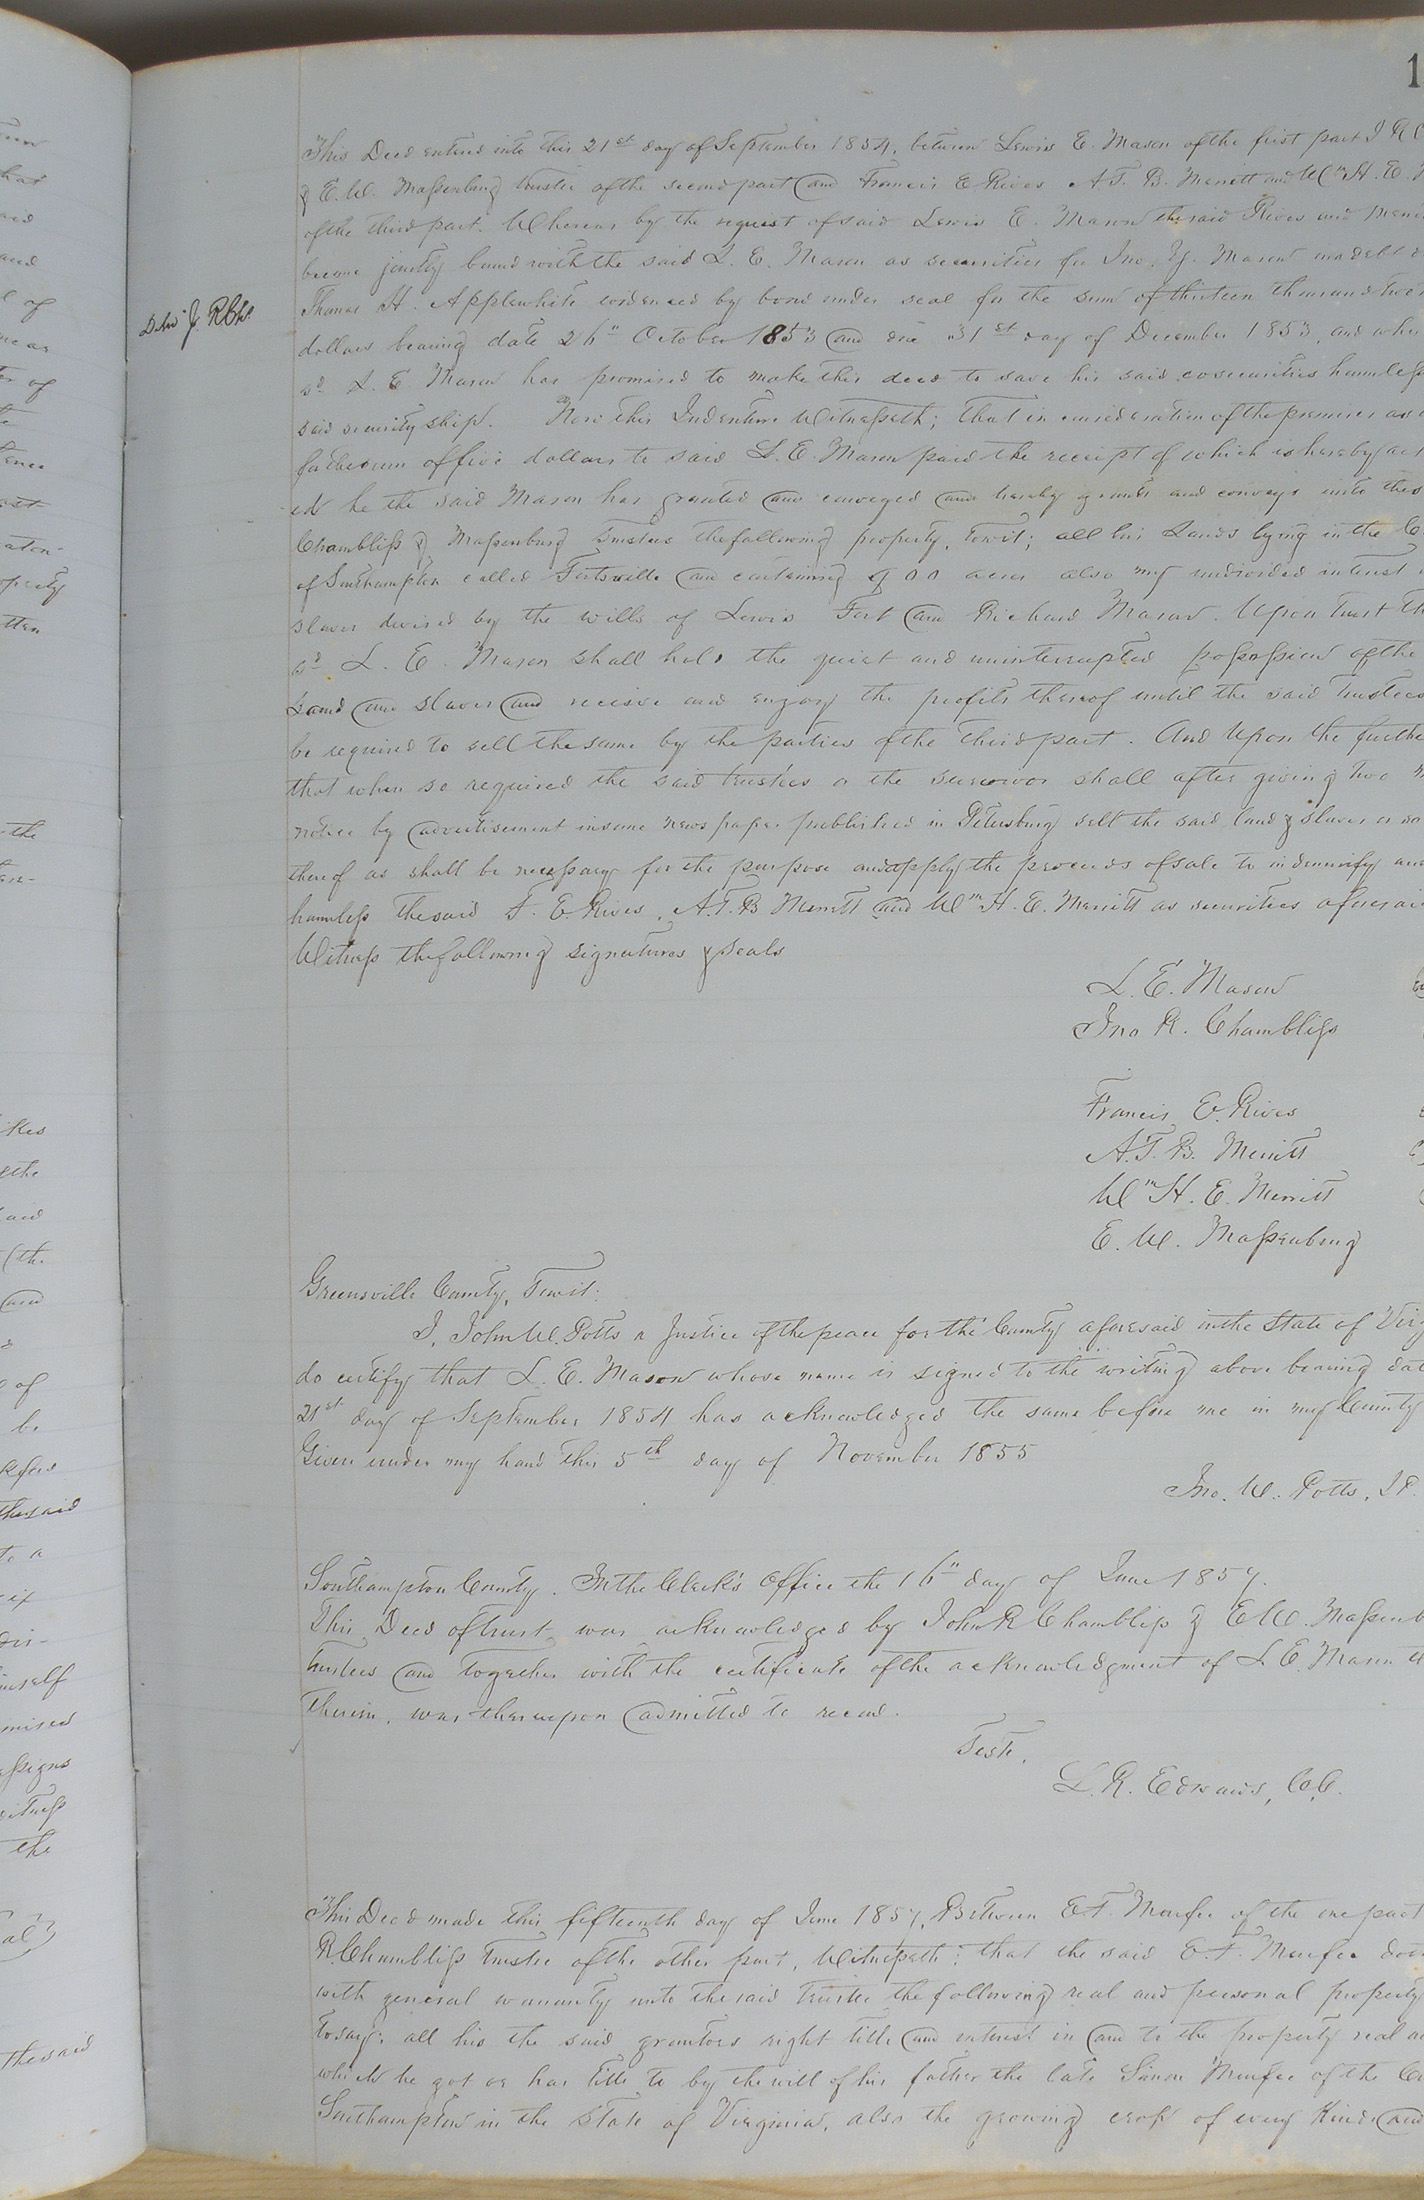 1
This Deed entered into this 21st day of September 1854, between Lewis E. Mason of the first part J R C
& E. W. Massenburg trustee of the second part and Francis E Rives A. T. B. Merritt and Wm H. E. M
of the third part. Whereas by the request of said Lewis E. Mason the said Rives and Merri
become jointly bound with the said L. E. Mason as securities for Jno. Y. Mason in a debt
Thomas H. Applewhite evidenced by bond under seal for the sum of thirteen thousand
Deld J. R Chs.
dollars bearing date 26" October 1853 and due 31st day of December 1853, and whe
sd L. E. Mason has promised to make this deed to save his said cosecurities harmless
said security ship. Now this Indenture Witnesseth; that in consideration of the premises as
for the sum of five dollars to said L. E. Mason paid the receipt of which is hereby
ed he the said Mason has granted and conveyed and hereby grants and conveys unto
Chambliss & Massenburg Trustees the following property, towit; all his Lands lying in the C
of Southampton called Fortsville and containing 900 acres also my undivided interest
slaves devised by the wills of Lewis Fort and Richard Mason. Upon trust th
sd L. E. Mason shall hold the quiet and uninterrupted possession of the
Land and slaves and receive and enjoy the profits thereof until the said Trustees
be required to sell the same by the parties of the third part. And Upon the furthe
that when so required the said trustees or the survivor shall after giving two
notice by advertisement in some news paper published in Petersburg sell the said land & slaves or so
thereof as shall be necessary for the purpose and apply the proceeds of sale to indemnify
harmless the said F. E Rives, A. T. B Merritt and Wm H. E. Merritt as securities aforesai
Witness the following signatures & seals
L. E. Mason
Jno R. Chambliss
Francis E. Rives
A. T. B. Merritt
Wm H. E. Merritt
E. W. Massenburg
Greensville County, Towit:
I, John W. Potts a Justice of the peace for the County aforesaid in the State of Virg
do certify that L. E. Mason whose name is signed to the writing above bearing dat
21st day of September 1854 has acknowledged the same before me in my County
Given under my hand this 5th day of November 1855
Jno. W. Potts, J P.
Southampton County. In the Clerk's Office the 16" day of June 1857.
This Deed of trust was acknowledged by John R Chambliss & E W. Massenb
trustees and together with the certificate of the acknowledgment of L E. Mason
therein, was thereupon admitted to record.
Teste,
L. R. Edwards, C. C.
This Deed made this fifteenth day of June 1857, Between E. F. Murfee of the one part
R. Chambliss trustee of the other part, Witnesseth; that the said E. F. Murfee
with general warranty unto the said trustee the following real and personal property
to say; all his the said grantors right title and interest in and to the property real
which he got or has title to by the will of his father the late Simon Murfee of the
Southampton in the State of Virginia, also the growing crop of every Kind and